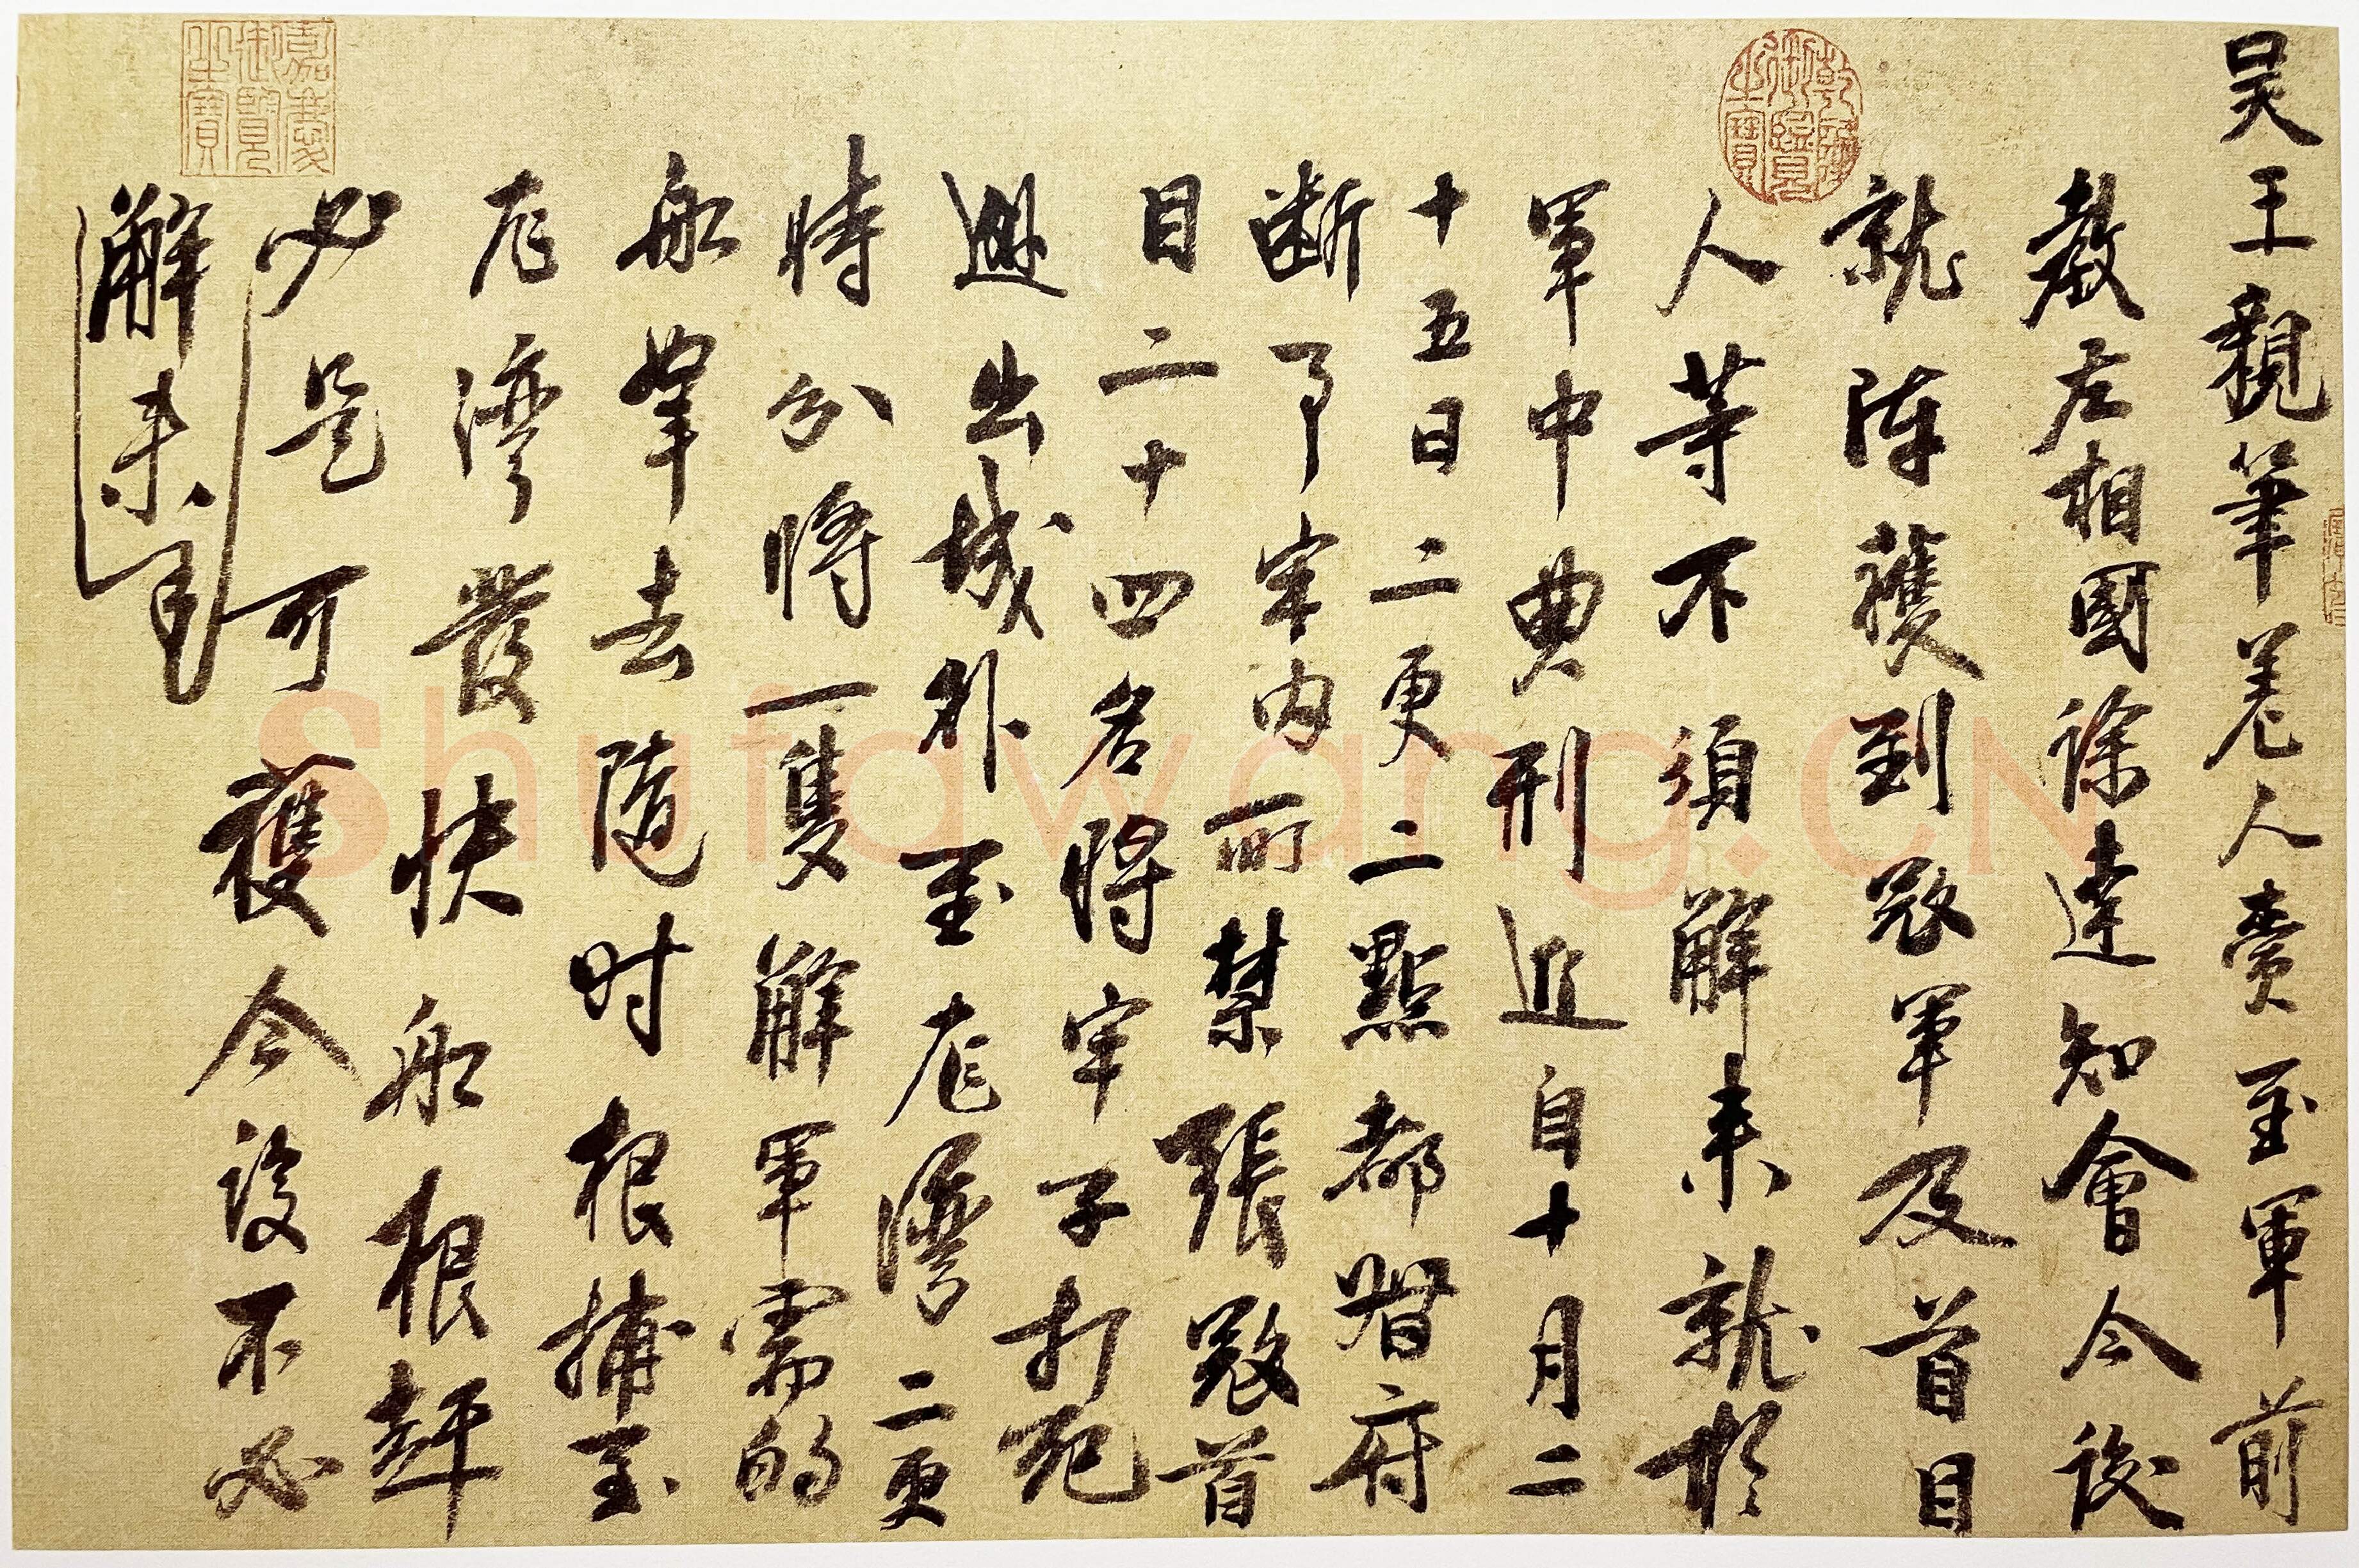 吴王親筆差人賫至軍前
教左相國徐達知會今後
就陣獲到寇軍及首目
人等不須解来就於
軍中典刑近自十月二
十五日二更二點都督府
断了牢内所禁張寇首
目二十四名將牢子打死
出城外至龙灣二更
時分將一隻解軍需的
船拏去隨时根捕至
龙灣發快船根趕
必是可獲今後不必
解来
乾隆御覽之寶
嘉慶御覽之寶
Shufawang.CN